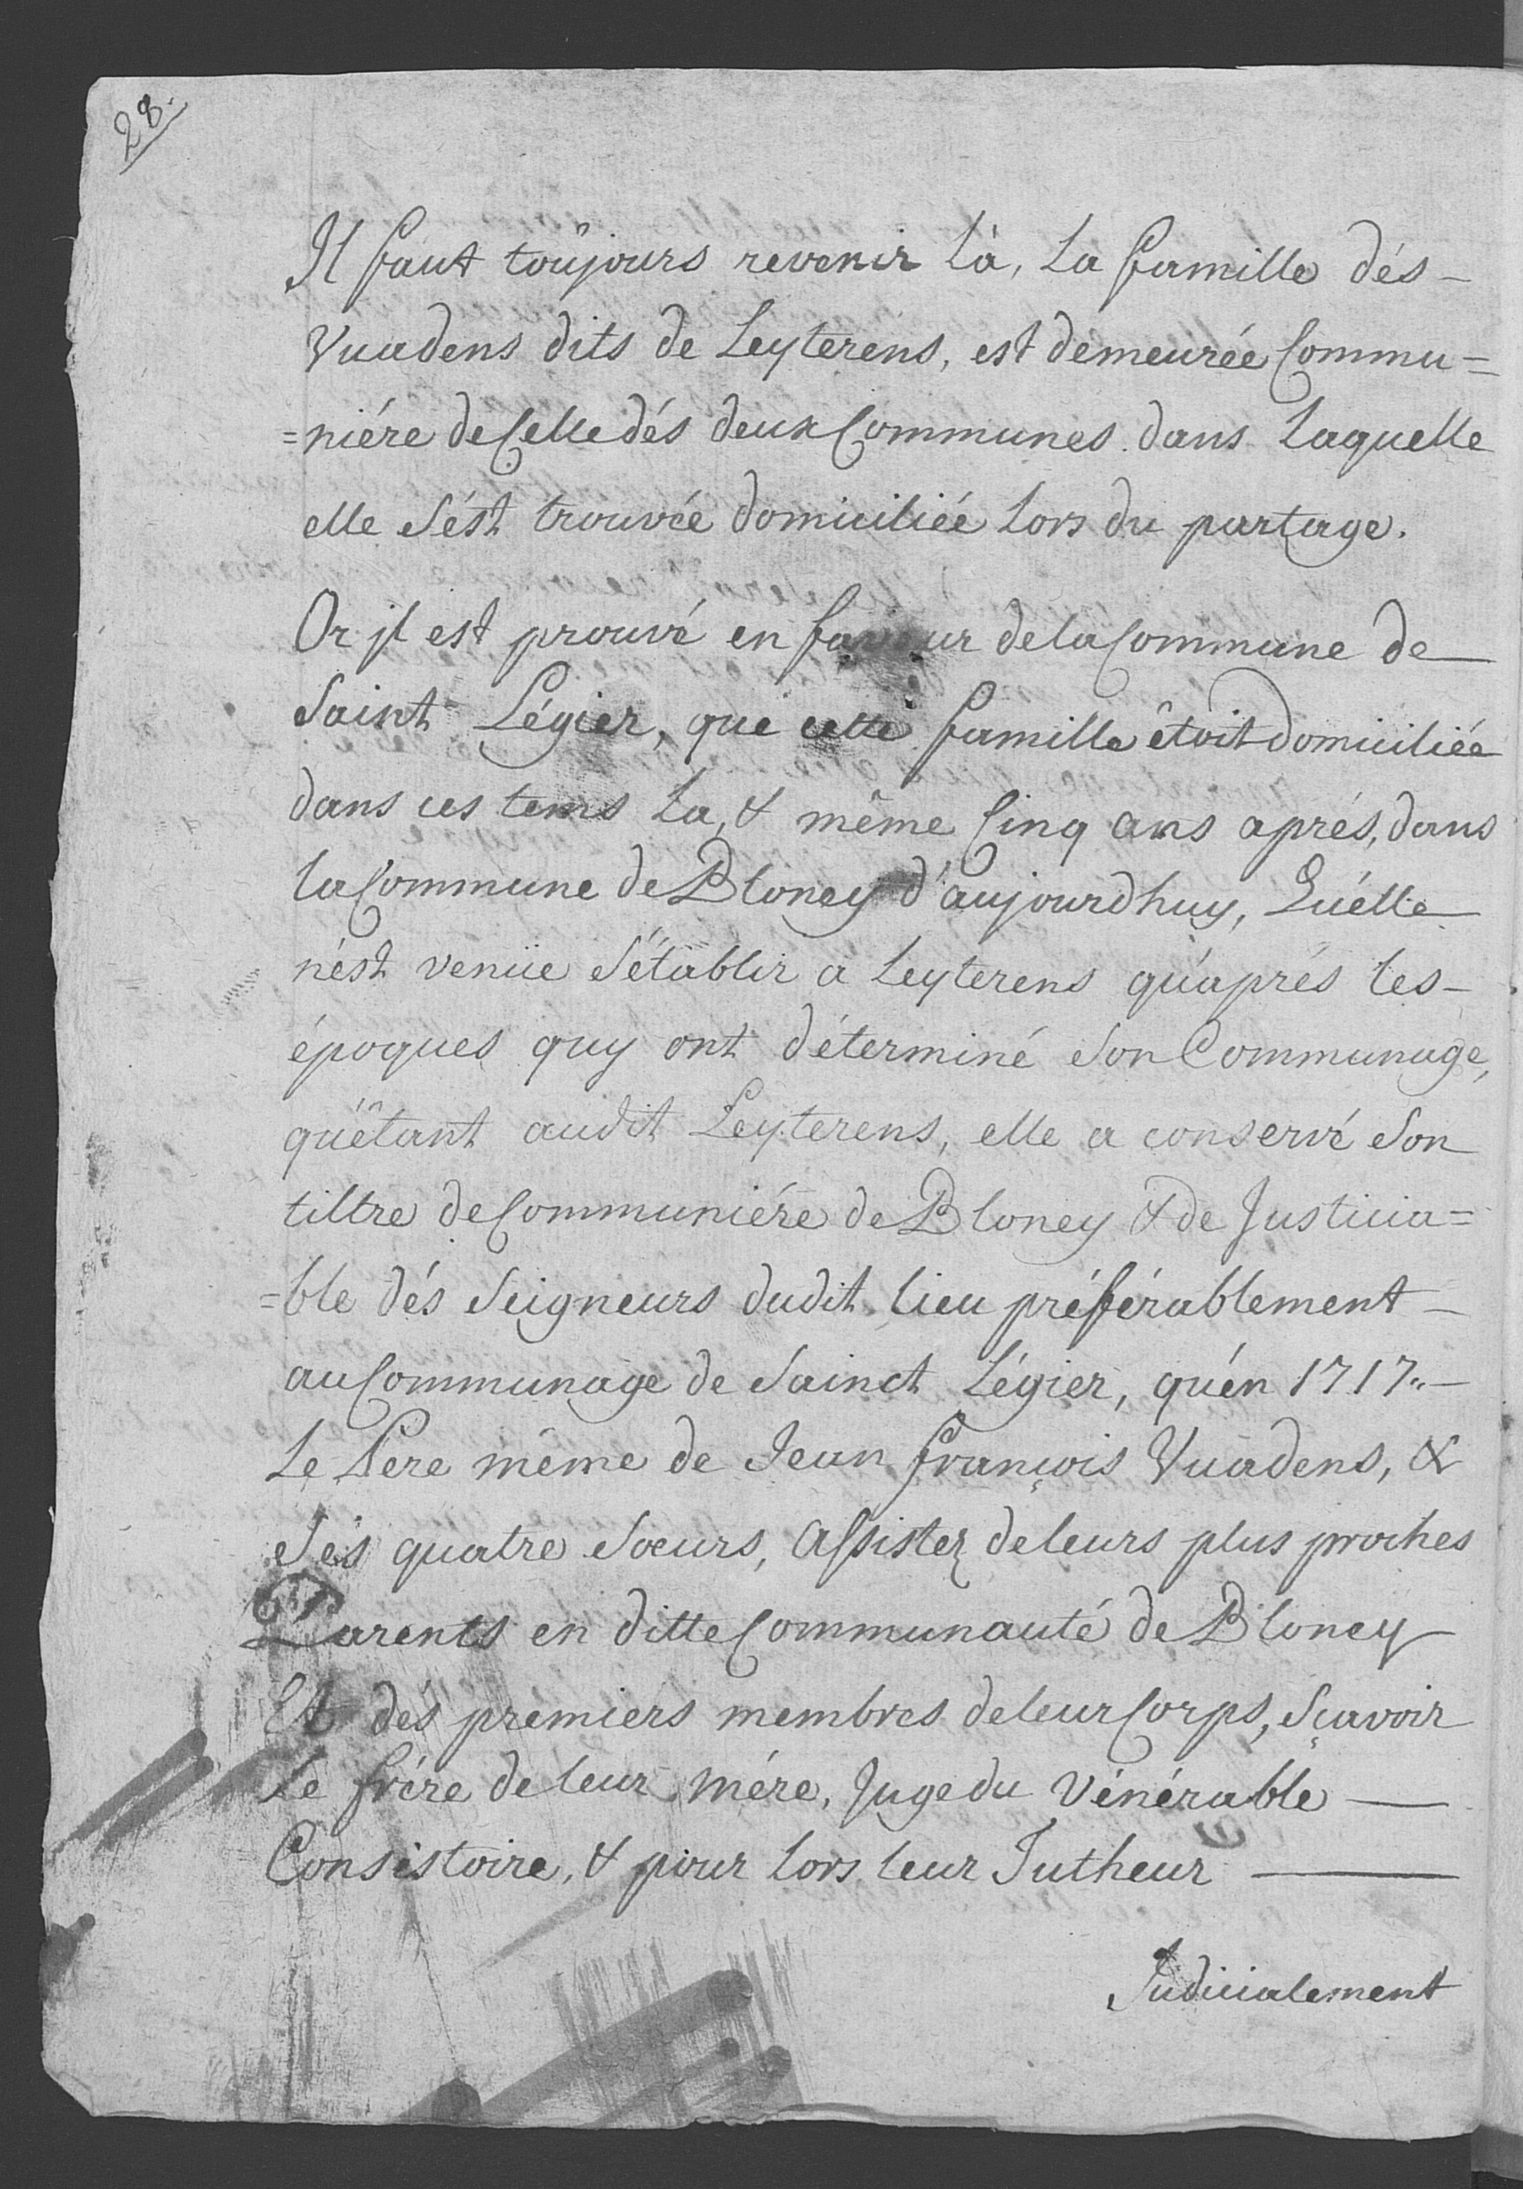 28.
Il faut toûjours revenir là, la famille dés
Vuadens dits de Leyterens, est demeurée Commu=
=niére de Celle dés deux Communes dans laquelle
elle s'ést trouvée domiciliée lors du partage.
Or jl est prouvé en faveur de la Commune de
Saint Légier, que cette famille êtoit domiciliée
dans ces tems la, & même Cinq ans aprés, dans
la Commune de Bloney d'aujourdhuy, Qu'élle
n'ést venüe s'établir a Leyterens qu'aprés les
époques quy ont déterminé son Communage,
qu'êtant audit Leyterens, elle a conservé son
tiltre de Communiére de Bloney & de Justicia=
=ble dés Seigneurs dudit lieu préférablement
au Communage de Sainct Légier, qu'én 1717.
Le Pere même de Jean François Vuadens, &
sés quatre soeurs, Assistez de leurs plus proches
Parents en ditte Communauté de Bloney
Et dés premiers membres de leur Corps, sçavoir
le frére de leur mére, Juge du Vénérable
Consistoire, & pour lors leur Tutheur
Judicialement